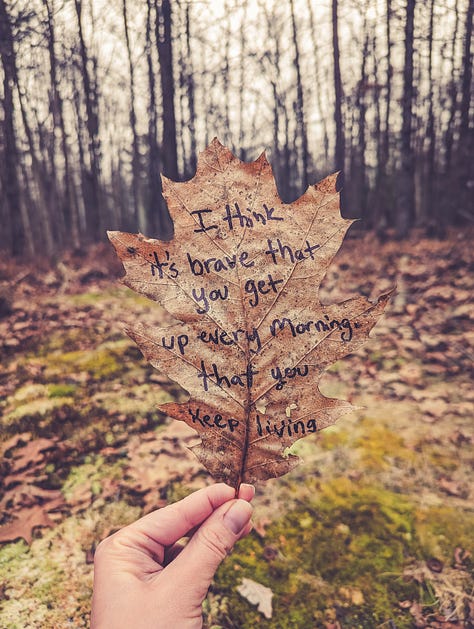 I think
it's brave that
you get
up every Morning.
that you
keep living